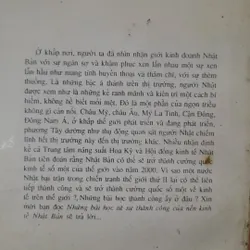 Ở khắp nơi, người ta đã nhìn nhận giới kinh doanh Nhật
Bản với sự ngạn sự và khâm phục xen lẫn nhau một sự xen
lẫn hầu như mang tính huyền thoại và thầm chí, với sự thèm
thuồng. Là những bậc á thánh trên thị trường, người Nhật
được xem như là những kẻ ranh mãnh và kiên trì một cách bí
hiểm, không hề biết mỏi mệt. Đó là một phần của ngọn triều
không gì cản nổi. Châu Mỹ, châu Âu, Mỹ La Tinh, Cận Đông,
Đông Nam Á, ở khắp thế giới phát triển và đang phát triển,
phương Tây dường như thụ động quan sát người Nhật chiếm
lĩnh hết thị trường này đến thị trường khác. Nhiều nhận định
kể cả Trung tâm năng suất Hoa Kỳ và Hội đồng kinh tế Nhật
Bản tiên đoán rằng Nhật Bản có thể sẽ trở thành cường quốc
kinh tế số một của thế giới vào năm 2000. Vì sao một nước
Nhật bại trận trong chiến tranh thế giới thứ II lại có thể liên
tiếp thành công và sẽ trở thành cường quốc số một về kinh
tế trên thế giới ?, Những bài học thành công ấy ở đâu ? Xin
mời bạn đọc Những bài học về sự thành công của nền kinh
tế Nhật Bản sẽ trả lời...